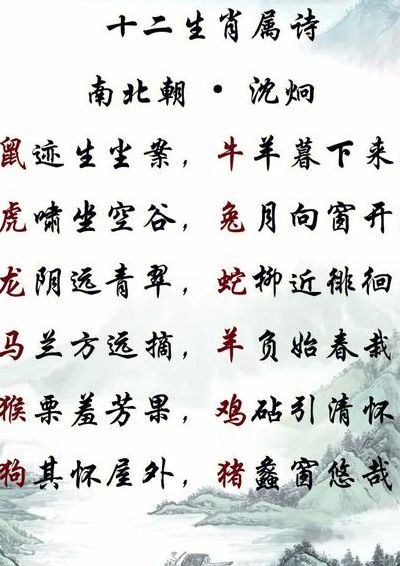 十二生肖属诗
南北朝·沈炯
鼠迹生尘案，牛羊暮下来
虎啸坐空谷，兔月向窗开
龙阴远青翠，蛇柳近徘徊
马兰方远摘，羊负始春栽
猴栗羞芳果，鸡砧引清怀
狗其怀屋外，猪蠡窗悠哉